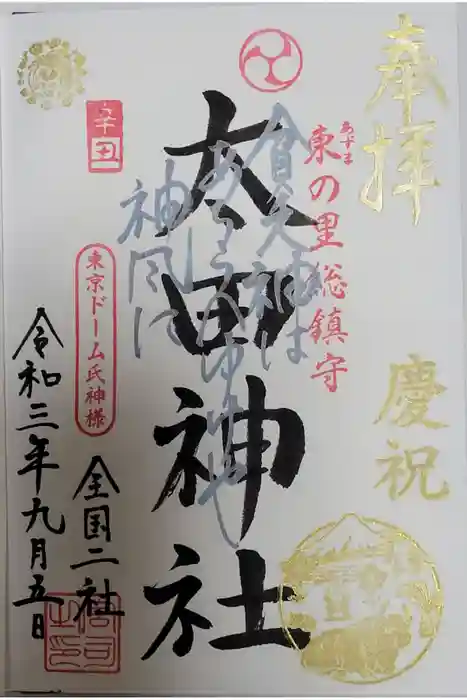 奉拝
慶祝
あずま
東の里総鎮守
貧乏神は
あちらへゆけや
神風に
太田神社
辛丑
東京ドーム氏神様
全国二社
令和三年九月五日